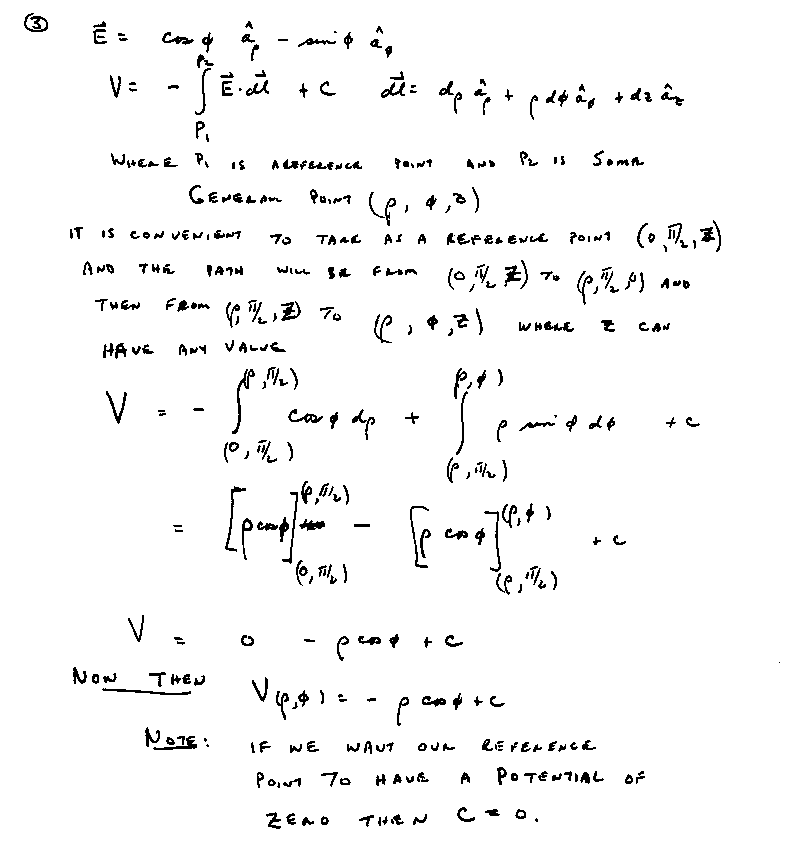 ③ E⃗ = cos φ â_ρ − sin φ â_φ
V = − ∫_{P₁}^{P₂} E⃗·dl⃗ + C dl⃗ = dρ â_ρ + ρ dφ â_φ + dz â_z
WHERE P₁ IS A REFERENCE POINT AND P₂ IS SOME
GENERAL POINT (ρ, φ, z)
IT IS CONVENIENT TO TAKE AS A REFERENCE POINT (0, π/2, z)
AND THE PATH WILL BE FROM (0, π/2, z) TO (ρ, π/2, z) AND
THEN FROM (ρ, π/2, z) TO (ρ, φ, z) WHERE z CAN
HAVE ANY VALUE
V = − ∫_{(0, π/2)}^{(ρ, π/2)} cos φ dρ + ∫_{(ρ, π/2)}^{(ρ, φ)} ρ sin φ dφ + C
= [ρ cos φ]_{(0, π/2)}^{(ρ, π/2)} − [ρ cos φ]_{(ρ, π/2)}^{(ρ, φ)} + C
V = 0 − ρ cos φ + C
NOW THEN V(ρ,φ) = − ρ cos φ + C
NOTE: IF WE WANT OUR REFERENCE
POINT TO HAVE A POTENTIAL OF
ZERO THEN C = 0.